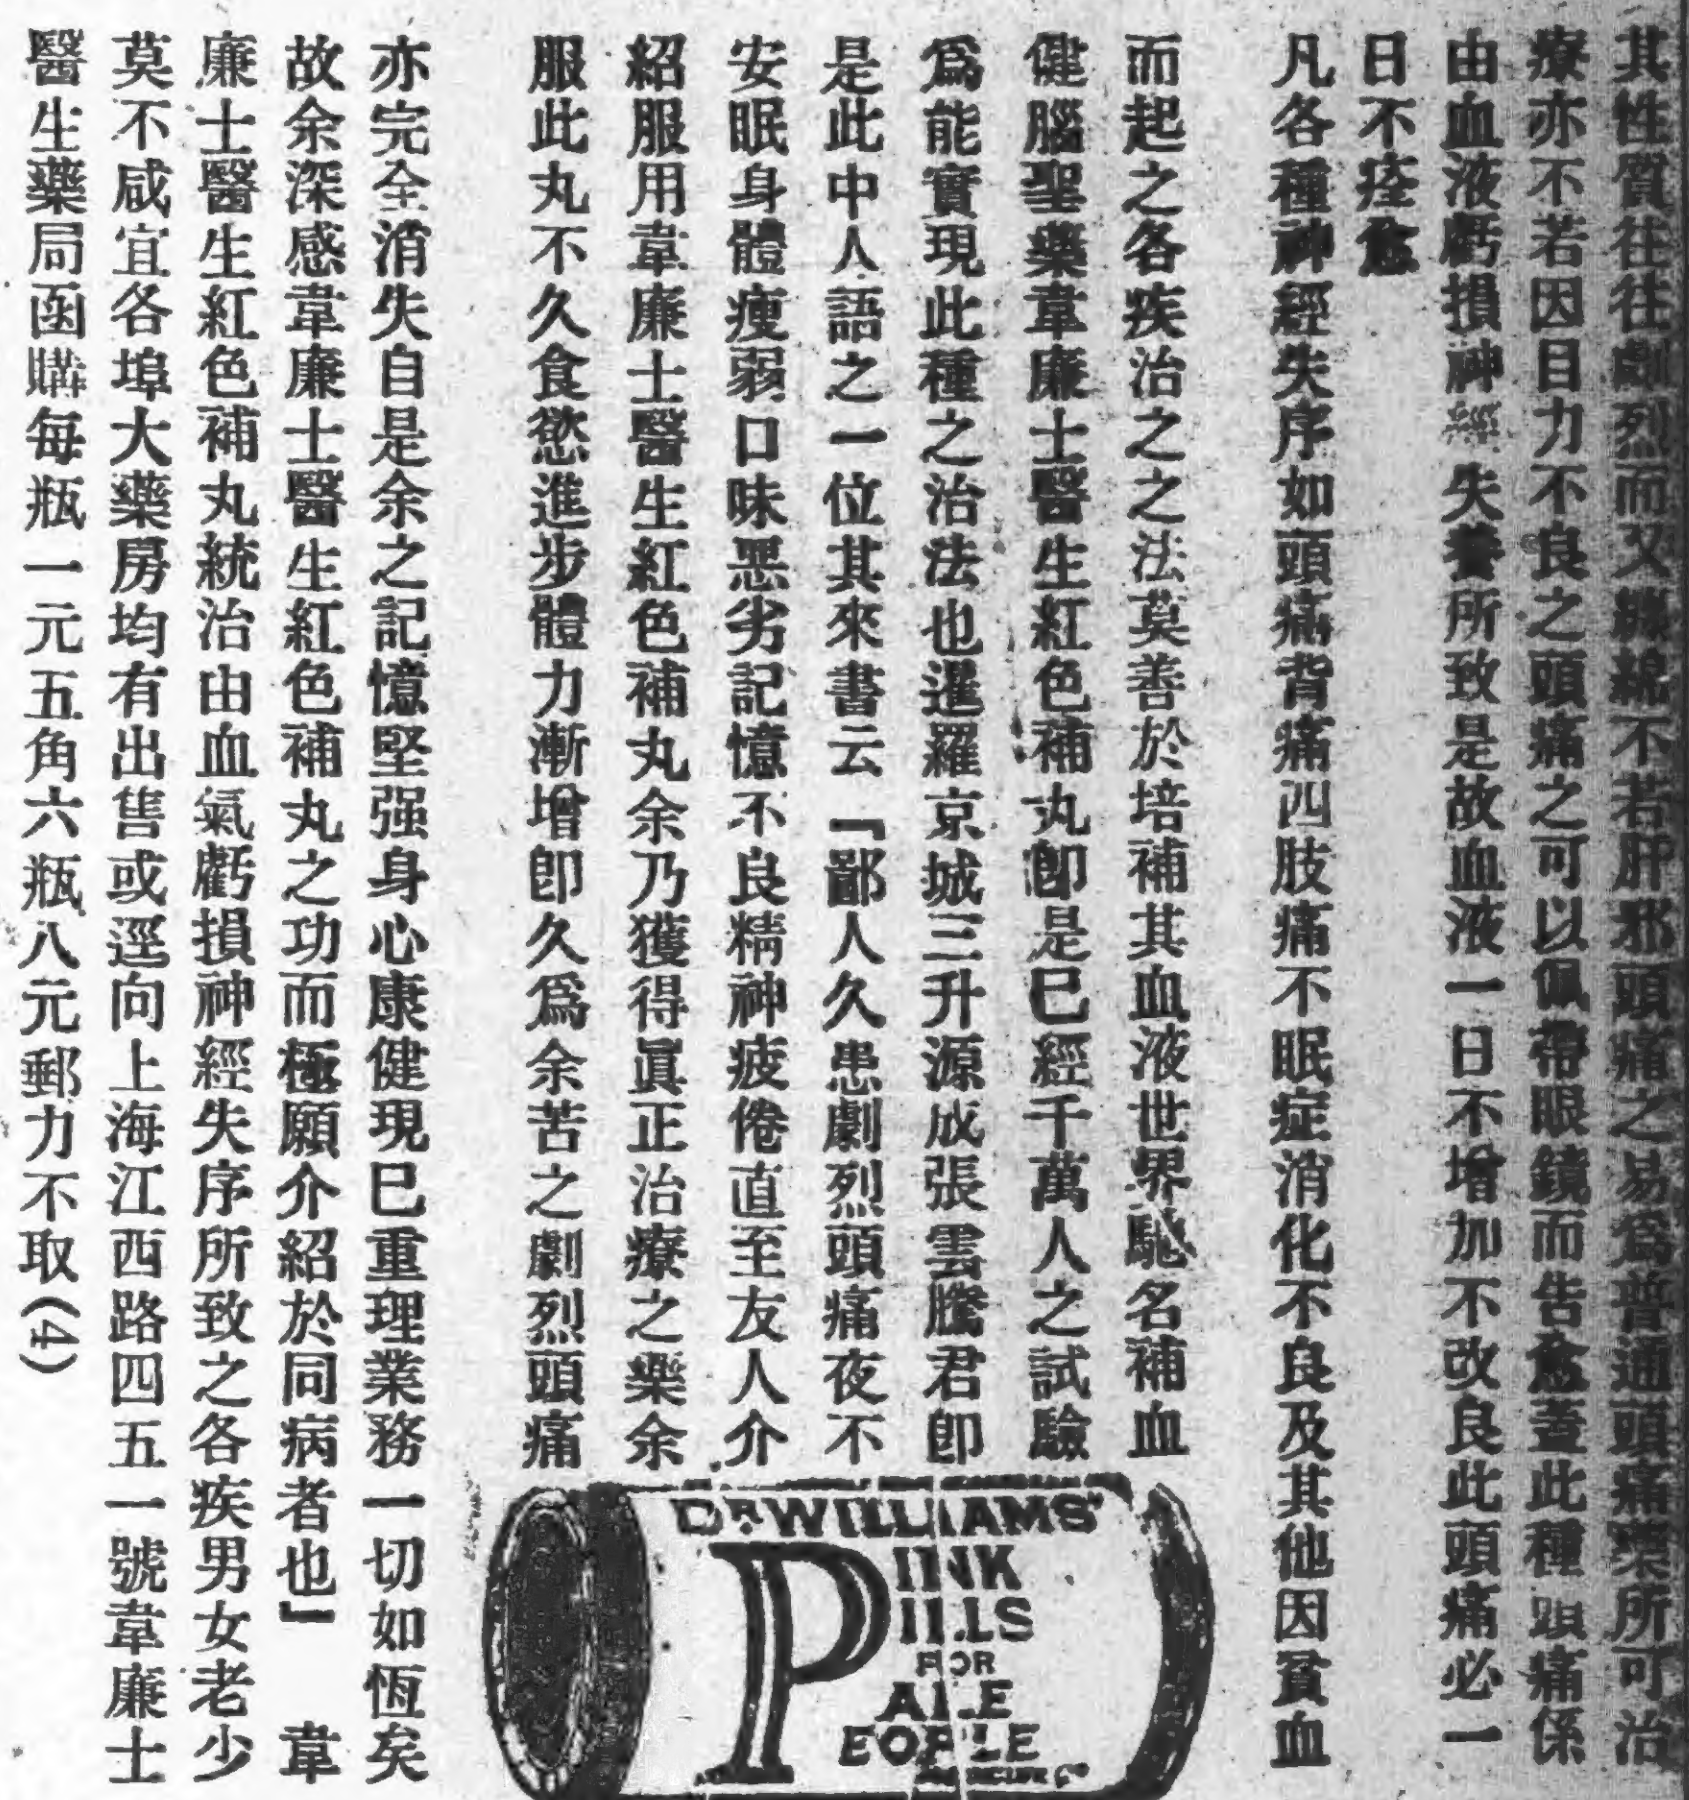 其性質往往劇烈而又纏綿不若肝邪頭痛之易爲普通頭痛藥所可治
療亦不若因目力不良之頭痛之可以佩帶眼鏡而告愈蓋此種頭痛係
由血液虧損神經失養所致是故血液一日不增加不改良此頭痛必一
日不痊愈
凡各種神經失序如頭痛背痛四肢痛不眠症消化不良及其他因貧血
而起之各疾治之之法莫善於培補其血液世界馳名補血
健腦聖藥韋廉士醫生紅色補丸卽是已經千萬人之試驗
爲能實現此種之治法也暹羅京城三升源成張雲騰君卽
是此中人語之一位其來書云『鄙人久患劇烈頭痛夜不
安眠身體瘦弱口味惡劣記憶不良精神疲倦直至友人介
紹服用韋廉士醫生紅色補丸余乃獲得眞正治療之樂余
服此丸不久食慾進步體力漸增卽久爲余苦之劇烈頭痛
亦完全消失自是余之記憶堅强身心康健現已重理業務一切如恆矣
故余深感韋廉士醫生紅色補丸之功而極願介紹於同病者也』 韋
廉士醫生紅色補丸統治由血氣虧損神經失序所致之各疾男女老少
莫不咸宜各埠大藥房均有出售或逕向上海江西路四五一號韋廉士
醫生藥局函購每瓶一元五角六瓶八元郵力不取(4)
DR WILLIAMS'
PINK
PILLS
FOR
PALE
PEOPLE